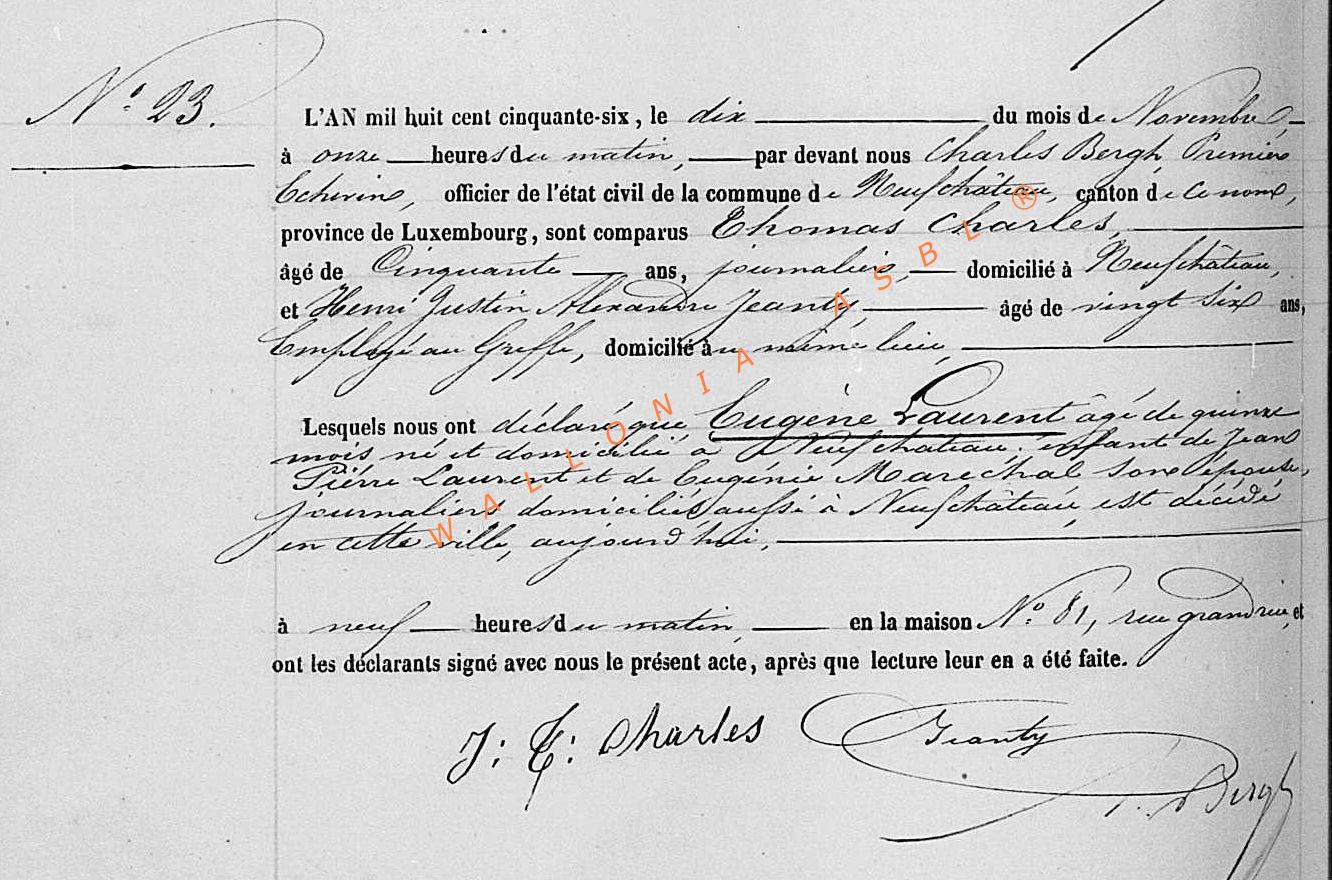 N° 23.
L'AN mil huit cent cinquante-six, le dix du mois de Novembre
à onze heures du matin, par devant nous Charles Bergh, Premier
Echevin, officier de l'état civil de la commune de Neufchâteau, canton de ce nom,
province de Luxembourg, sont comparus Thomas Charles,
âgé de Cinquante ans, journalier, domicilié à Neufchâteau,
et Henri Justin Alexandre Jeanty, âgé de vingt six ans,
Employé au Greffe, domicilié au même lieu,
Lesquels nous ont déclaré que Eugène Laurent âgé de quinze
mois né et domicilié à Neufchâteau, enfant de Jean
Pierre Laurent et de Eugénie Marechal son épouse,
journaliers domiciliés aussi à Neufchâteau, est décédé
en cette ville, aujourd'hui,
à neuf heures du matin, en la maison N° 81, rue grand rue, et
ont les déclarants signé avec nous le présent acte, après que lecture leur en a été faite.
J: T: Charles Jeanty
Bergh
WALLONIA ASBL ®